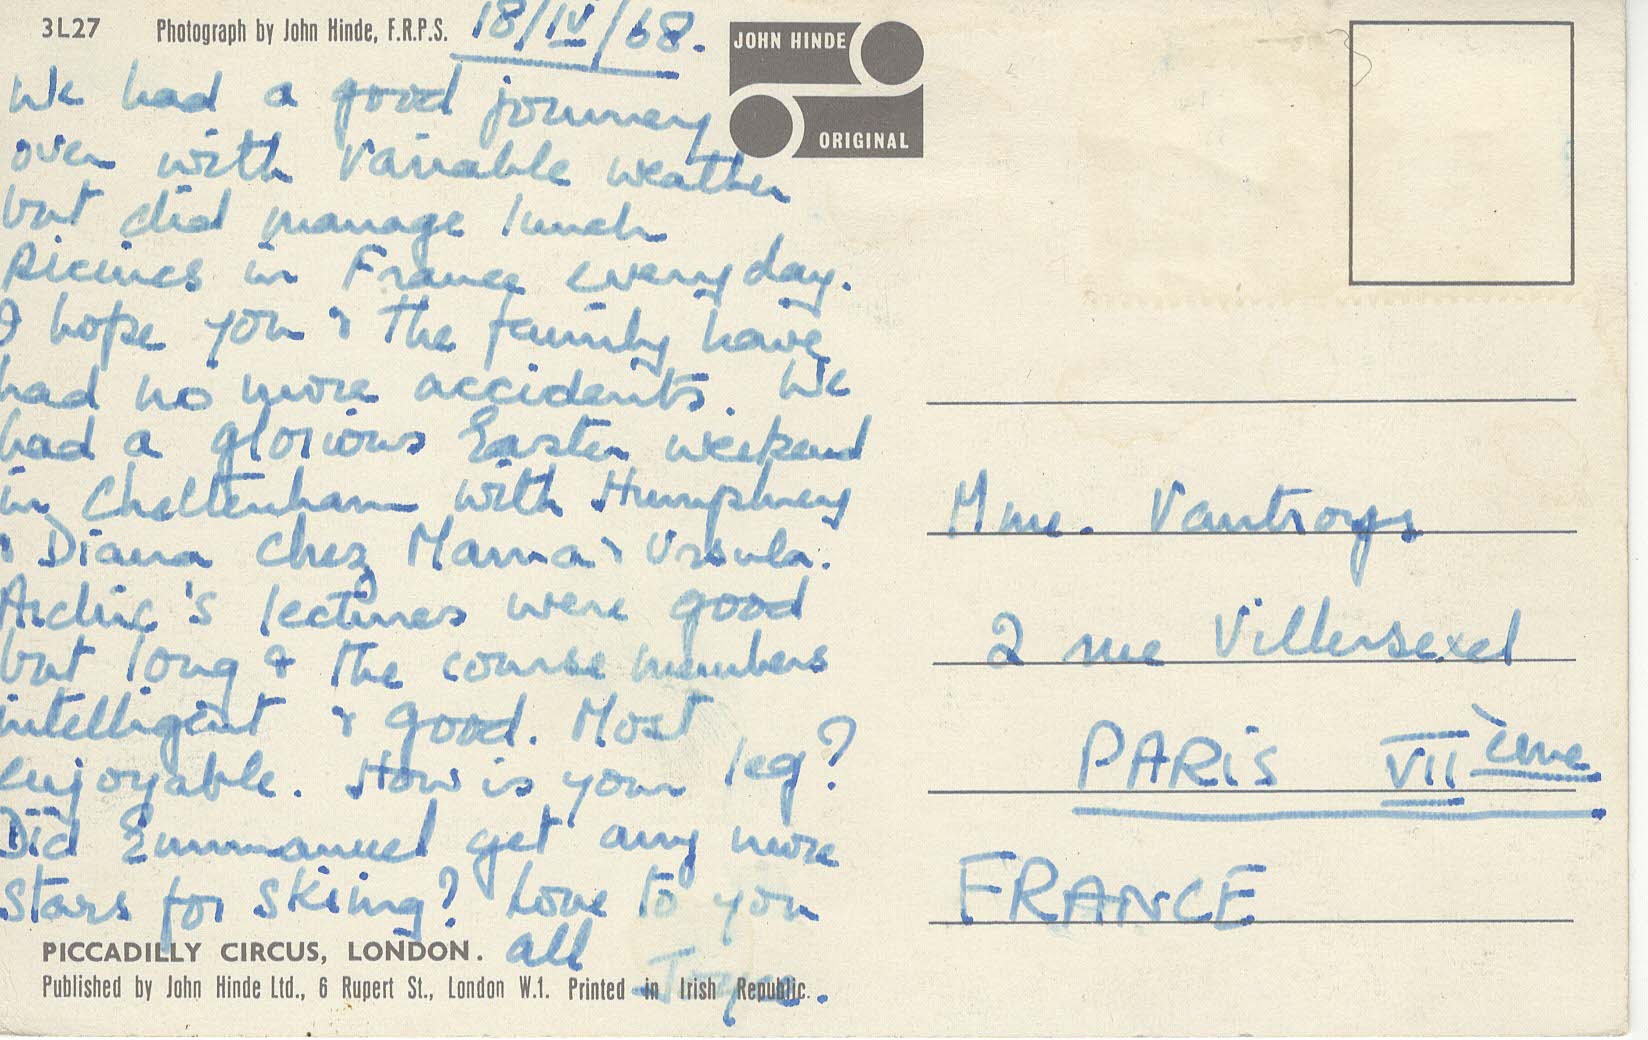 3L27 Photograph by John Hinde, F.R.P.S. 18/IV/68.
JOHN HINDE
ORIGINAL
We had a good journey
over with variable weather
but did manage lunch
picnics in France every day.
I hope you & the family have
had no more accidents. We
had a glorious Easter weekend
in Cheltenham with Humphrey
& Diana chez Mama & Ursula.
Archie's lectures were good
but long & the course members
intelligent & good. Most
enjoyable. How is your leg?
Did Emmanuel get any more
stars for skiing? Love to you
all
Joyce.
PICCADILLY CIRCUS, LONDON.
Published by John Hinde Ltd., 6 Rupert St., London W.1. Printed in Irish Republic.
Mme. Vantroys
2 rue Villersexel
PARIS VII ème
FRANCE